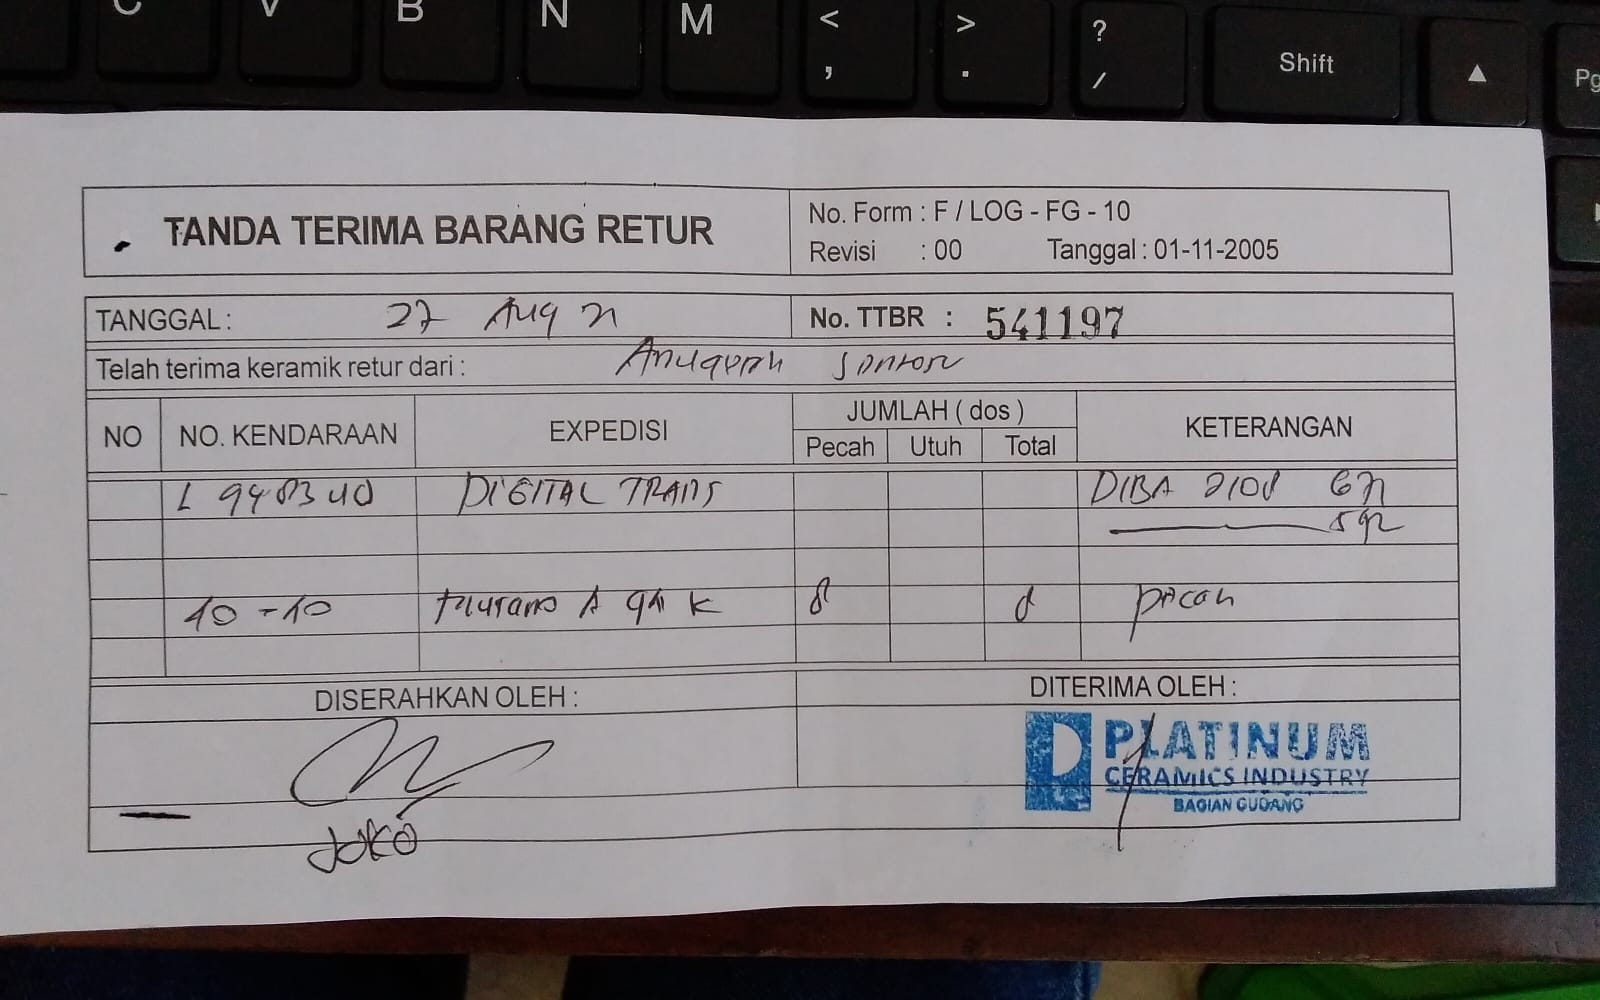 C V B N M < , > . ? / Shift ▲ Pg
TANDA TERIMA BARANG RETUR
No. Form : F / LOG - FG - 10
Revisi : 00 Tanggal : 01-11-2005
TANGGAL : 27 Aug 21
No. TTBR : 541197
Telah terima keramik retur dari : Anugerah
NO NO. KENDARAAN EXPEDISI JUMLAH ( dos ) KETERANGAN
Pecah Utuh Total
DIGITAL TRANS DIBA
10 - 10 A K 8 8 pecah
DISERAHKAN OLEH :
DITERIMA OLEH :
PLATINUM
CERAMICS INDUSTRY
BAGIAN GUDANG
JOKO